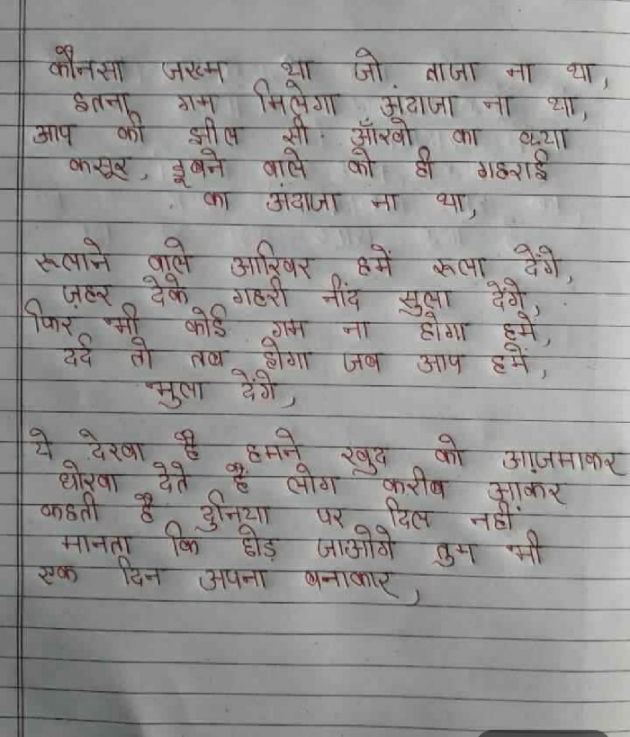 कौनसा जख्म था जो ताजा ना था,
इतना गम मिलेगा अंदाजा ना था,
आप की झील सी आँखो का क्या
कसूर, डूबने वाले को ही गहराई
का अंदाजा ना था,
रूलाने वाले आखिर हमें रूला देंगे,
ज़हर देके गहरी नींद सुला देंगे,
फिर भी कोई गम ना होगा हमें,
दर्द तो तब होगा जब आप हमें,
भुला देंगे,
ये देखा है हमने खुद को आज़माकर
धोखा देते हैं लोग करीब आकर
कहती है दुनिया पर दिल नहीं
मानता कि छोड़ जाओगे तुम भी
एक दिन अपना बनाकार,